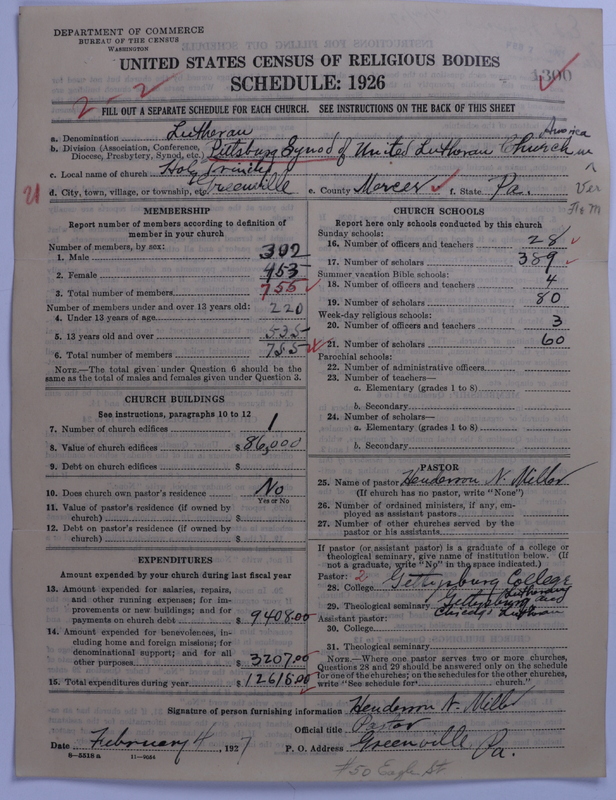 DEPARTMENT OF COMMERCE
BUREAU OF THE CENSUS
WASHINGTON
UNITED STATES CENSUS OF RELIGIOUS BODIES
SCHEDULE: 1926
1300
2-2
FILL OUT A SEPARATE SCHEDULE FOR EACH CHURCH. SEE INSTRUCTIONS ON THE BACK OF THIS SHEET
a. Denomination Lutheran
b. Division (Association, Conference, Diocese, Presbytery, Synod, etc.) Pittsburg Synod of United Lutheran Church in America
c. Local name of church Holy Trinity
d. City, town, village, or township, etc. Greenville e. County Mercer f. State Pa.
MEMBERSHIP
Report number of members according to definition of
member in your church
Number of members, by sex:
1. Male 302
2. Female 453
3. Total number of members 755
Number of members under and over 13 years old:
4. Under 13 years of age 220
5. 13 years old and over 535
6. Total number of members 755
NOTE.—The total given under Question 6 should be the
same as the total of males and females given under Question 3.
CHURCH BUILDINGS
See instructions, paragraphs 10 to 12
7. Number of church edifices 1
8. Value of church edifices $ 86,000
9. Debt on church edifices $
10. Does church own pastor's residence No
Yes or No
11. Value of pastor's residence (if owned by
church) $
12. Debt on pastor's residence (if owned by
church) $
EXPENDITURES
Amount expended by your church during last fiscal year
13. Amount expended for salaries, repairs,
and other running expenses; for im-
provements or new buildings; and for
payments on church debt $ 9408.00
14. Amount expended for benevolences, in-
cluding home and foreign missions; for
denominational support; and for all
other purposes $ 3207.00
15. Total expenditures during year $ 12615.00
CHURCH SCHOOLS
Report here only schools conducted by this church
Sunday schools:
16. Number of officers and teachers 28
17. Number of scholars 389
Summer vacation Bible schools:
18. Number of officers and teachers 4
19. Number of scholars 80
Week-day religious schools:
20. Number of officers and teachers 3
21. Number of scholars 60
Parochial schools:
22. Number of administrative officers
23. Number of teachers—
a. Elementary (grades 1 to 8)
b. Secondary
24. Number of scholars—
a. Elementary (grades 1 to 8)
b. Secondary
PASTOR
25. Name of pastor Henderson N. Miller
(If church has no pastor, write "None")
26. Number of ordained ministers, if any, em-
ployed as assistant pastors
27. Number of other churches served by the
pastor or his assistants
If pastor (or assistant pastor) is a graduate of a college or
theological seminary, give name of institution below. (If
not a graduate, write "No" in the space indicated.)
Pastor: 2
28. College Gettysburg College
29. Theological seminary Gettysburg Lutheran and Chicago Lutheran
Assistant pastor:
30. College
31. Theological seminary
NOTE.—Where one pastor serves two or more churches,
Questions 28 and 29 should be answered only on the schedule
for one of the churches; on the schedules for the other churches,
write "See schedule for church."
Signature of person furnishing information Henderson N. Miller
Official title Pastor
Date February 4, 1927 P. O. Address Greenville Pa.
6-5518 a 11-9054
#50 Eagle St